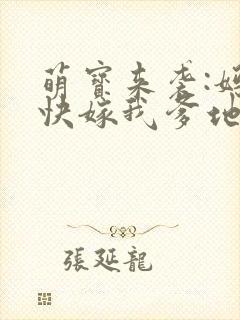 萌寶来袭:
快嫁我爹地
張延龍